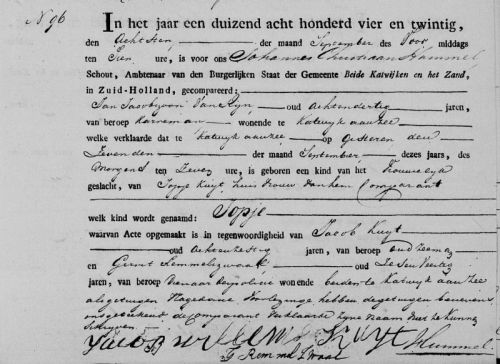 N 96
In het jaar een duizend acht honderd vier en twintig,
den Achtsten der maand September des Voor middags
ten Tien ure, is voor ons Johannes Christiaan Hummel
Schout, Ambtenaar van den Burgerlijken Staat der Gemeente Beide Katwijken en het Zand,
in Zuid-Holland, gecompareert;
Jan Jacobszoon Van Rijn oud achtendertig jaren,
van beroep wonende te Katwijk aan Zee
welke verklaarde dat te Katwijk aan Zee op Gisteren den
Zevenden der maand September dezes jaars, des
Morgens ten Zeven ure, is geboren een kind van het Vrouwelijk
geslacht, van Sopje Kuyt, huis vrouw van hem Comparant
welk kind wordt genaamd: Sopje
waarvan Acte opgemaakt is in tegenwoordigheid van Jacob Kuyt
oud achtenzestig jaren, van beroep
en Gerrit Remmelzwaal oud
jaren, van beroep wonende beiden te Katwijk aan Zee
als getuigen hebben de getuigen benevens
ons getekent de Comparant verklaarde zyne Naam Niet te Kunnen
Schryven
Jacob Kuyt Hummel
G Remmelzwaal